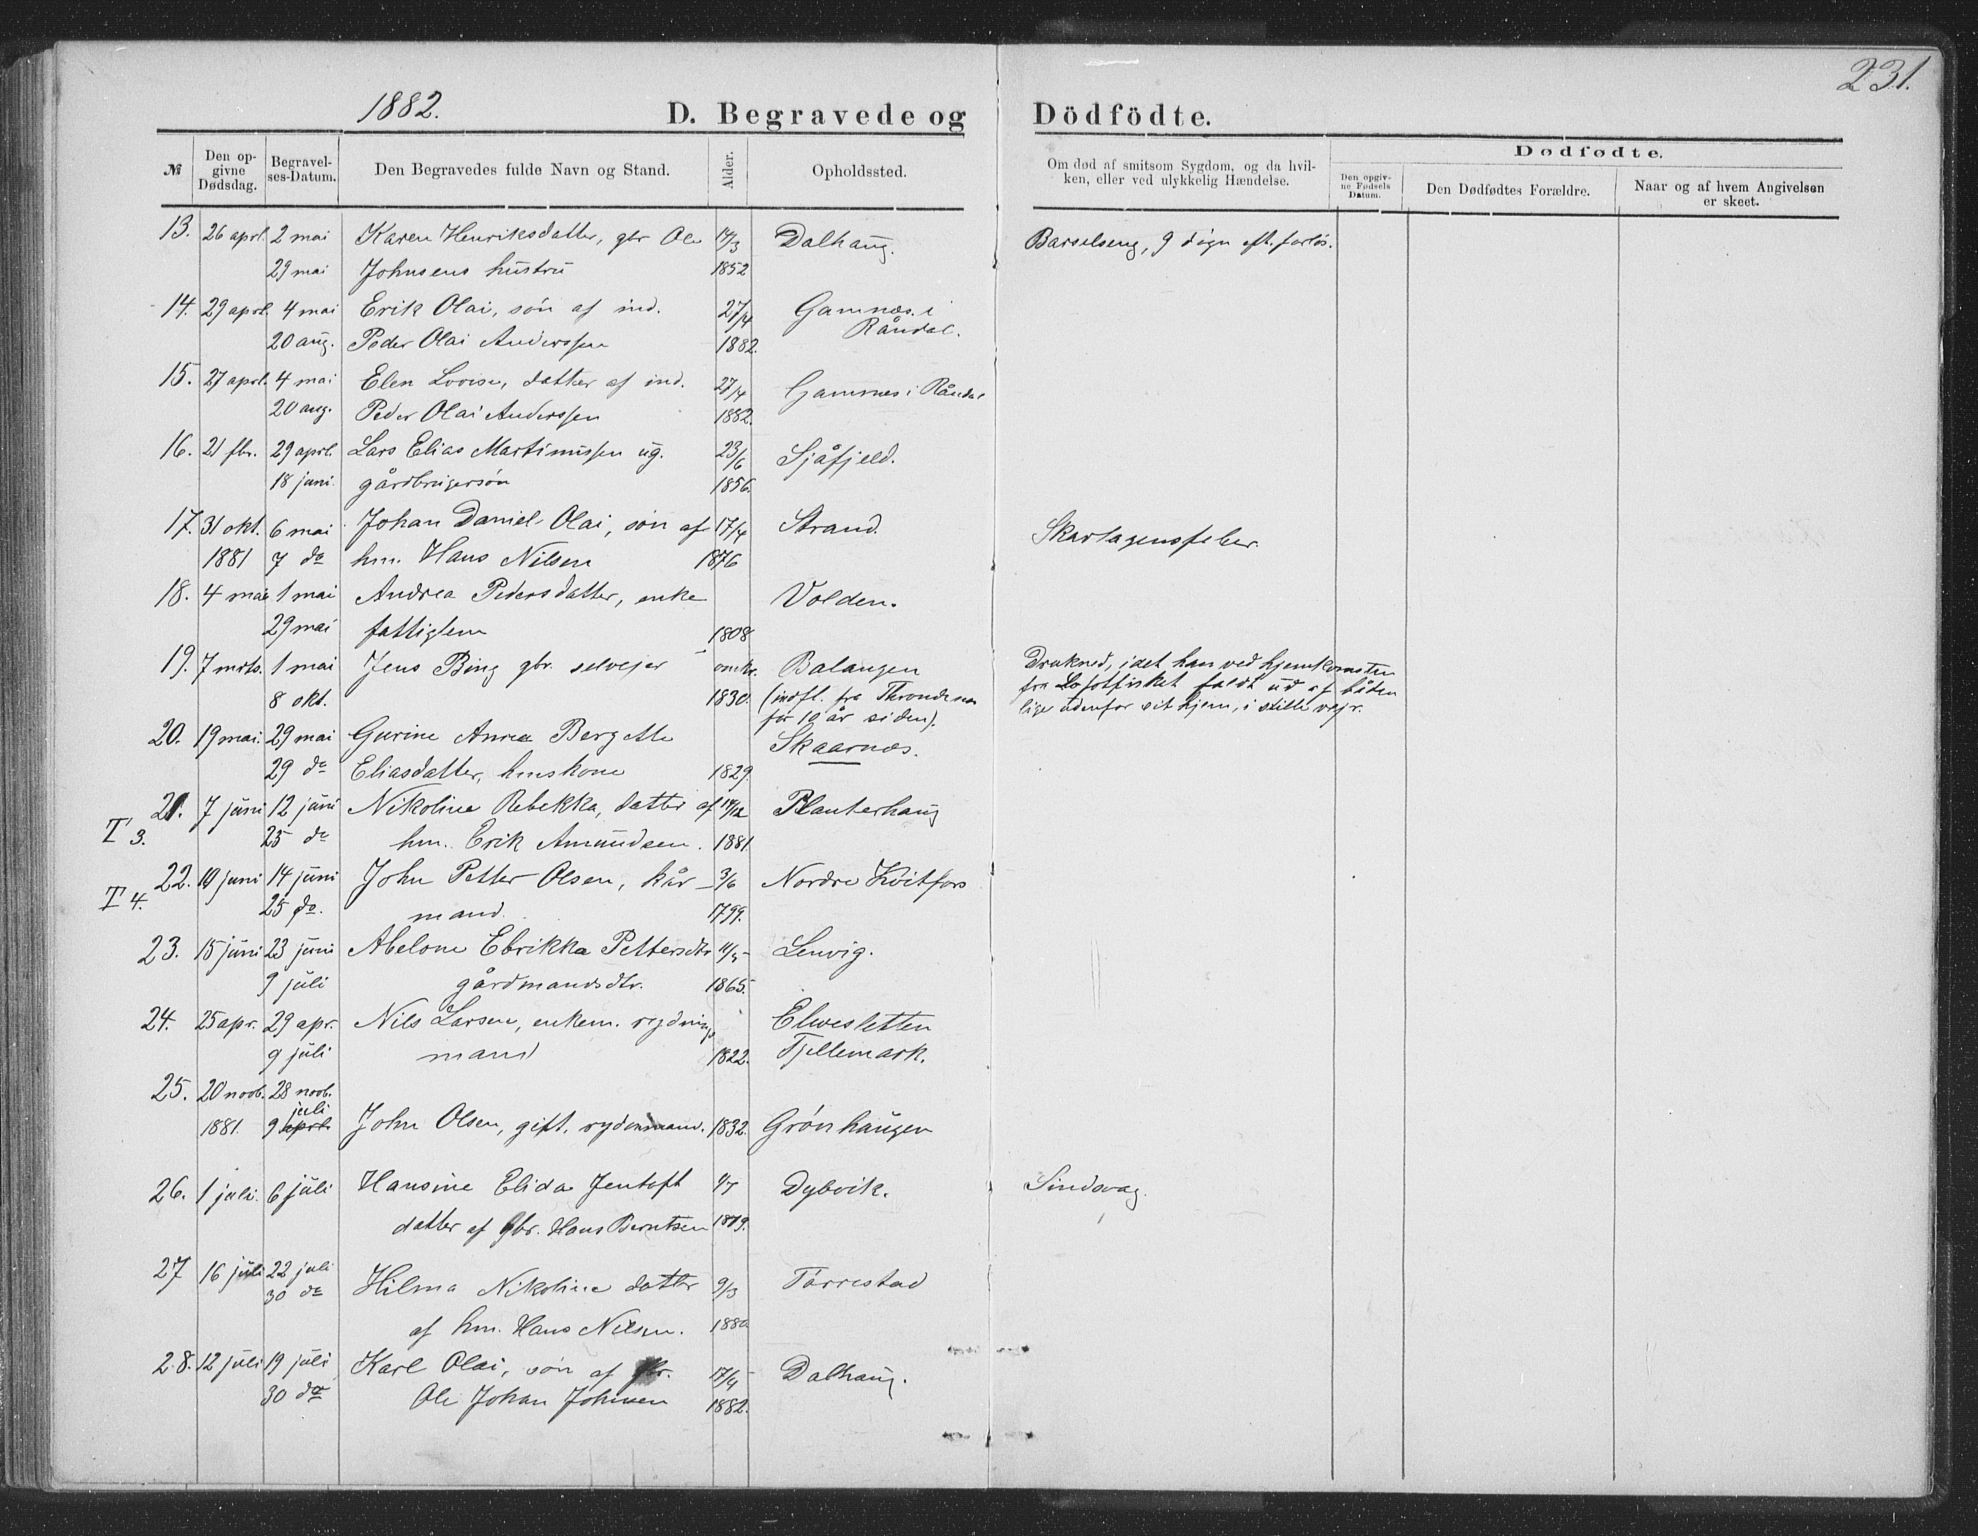 231.
1882.
D. Begravede og Dödfödte.
№
Den opgivne Dødsdag.
Begravelses-Datum.
Den Begravedes fulde Navn og Stand.
Alder.
Opholdssted.
Om død af smitsom Sygdom, og da hvilken, eller ved ulykkelig Hændelse.
Dødfødte.
Den opgivne Fødsels Datum.
Den Dødfødtes Forældre.
Naar og af hvem Angivelsen er skeet.
13. 26 aprl. 2 mai Karen Henriksdatter, gbr Ole 14/3 Dalhaug. Barselseng, 9 døgn eft. forløs.
29 mai Johnsens hustru 1852
14. 29 aprl. 4 mai Erik Olai, søn af ind. 27/4 Gamnes i
20 aug. Peder Olai Anderssen 1882. Råndal.
15. 27 aprl. 4 mai Elen Lovise, datter af ind. 27/4 Gamnes i Råndal
20 aug. Peder Olai Anderssen 1882.
16. 21 fbr. 29 aprl. Lars Elias Martinussen ug. 23/6 Sjåfjeld.
18 juni. gårdbrugersøn 1856.
17. 31 okt. 6 mai Johan Daniel Olai, søn af 17/4 Strand. Skarlagensfeber.
1881 7 do hm. Hans Nilsen 1876
18. 4 mai 1 mai Andrea Pedersdatter, enke Volden.
29 mai fattiglem 1808
19. 7 mrts. 1 mai Jens Bing gbr. selvejer omkr. Balangen Drukned, idet han ved hjemkomsten
8 okt. 1830. (indfl. fra Throndenes fra Lofotfisket faldt ud af båden
for 10 år siden). lige udenfor sit hjem, i stille vejr.
20. 19 mai. 29 mai Gurine Anna Bergette Skaarnæs.
29 do Eliasdatter, hmskone 1829.
21. 7 juni 12 juni Nikoline Rebekka, datter af 14/12 Planterhaug
T 3. 25 do hm. Erik Amundsen. 1881.
22. 10 juni 14 juni John Petter Olsen, kår- 3/6 Nordre Kvitfors
T 4. 25 do. mand. 1799.
23. 15 juni 23 juni Abelone Ebrikka Pettersdtr 11/5 Lenvig.
9 juli gårdmandsdtr. 1865.
24. 25 apr. 29 apr. Nils Larsen, enkem. rydnings Elvesletten
9 juli mand 1822. Tjellemark.
25. 20 novb. 28 novb.
juli
1881. 9 aprl. John Olsen, gift, rydn.mand. 1832. Grønhaugen
26. 1 juli. 6 juli Hansine Elida Jentoft Dybvik. Sindsvag.
datter af gbr. Hans Berntsen 1879.
27 16 juli 22 juli Hilma Nikoline datter 9/3 Tårrestad
30 do af hm. Hans Nilsen. 1880
28. 12 juli 19 juli Karl Olai, søn af gbr. 17/4 Dalhaug.
30 do Ole Johan Johnsen 1882.